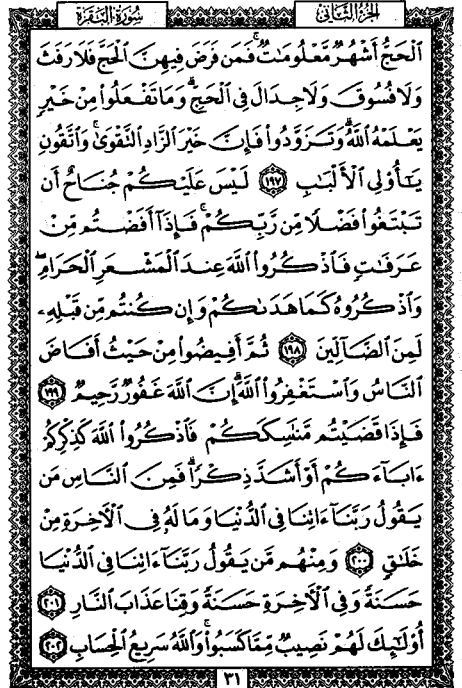 سُورَةُ البَقَرَةِ
الجُزءُ الثَّانِي
ٱلْحَجُّ أَشْهُرٌ مَّعْلُومَٰتٌ ۚ فَمَن فَرَضَ فِيهِنَّ ٱلْحَجَّ فَلَا رَفَثَ
وَلَا فُسُوقَ وَلَا جِدَالَ فِى ٱلْحَجِّ ۗ وَمَا تَفْعَلُوا۟ مِنْ خَيْرٍ
يَعْلَمْهُ ٱللَّهُ ۗ وَتَزَوَّدُوا۟ فَإِنَّ خَيْرَ ٱلزَّادِ ٱلتَّقْوَىٰ ۚ وَٱتَّقُونِ
يَٰٓأُو۟لِى ٱلْأَلْبَٰبِ ١٩٧ لَيْسَ عَلَيْكُمْ جُنَاحٌ أَن
تَبْتَغُوا۟ فَضْلًا مِّن رَّبِّكُمْ ۚ فَإِذَآ أَفَضْتُم مِّنْ
عَرَفَٰتٍ فَٱذْكُرُوا۟ ٱللَّهَ عِندَ ٱلْمَشْعَرِ ٱلْحَرَامِ ۖ
وَٱذْكُرُوهُ كَمَا هَدَىٰكُمْ وَإِن كُنتُم مِّن قَبْلِهِۦ
لَمِنَ ٱلضَّآلِّينَ ١٩٨ ثُمَّ أَفِيضُوا۟ مِنْ حَيْثُ أَفَاضَ
ٱلنَّاسُ وَٱسْتَغْفِرُوا۟ ٱللَّهَ ۚ إِنَّ ٱللَّهَ غَفُورٌ رَّحِيمٌ ١٩٩
فَإِذَا قَضَيْتُم مَّنَٰسِكَكُمْ فَٱذْكُرُوا۟ ٱللَّهَ كَذِكْرِكُمْ
ءَابَآءَكُمْ أَوْ أَشَدَّ ذِكْرًا ۗ فَمِنَ ٱلنَّاسِ مَن
يَقُولُ رَبَّنَآ ءَاتِنَا فِى ٱلدُّنْيَا وَمَا لَهُۥ فِى ٱلْءَاخِرَةِ مِنْ
خَلَٰقٍ ٢٠٠ وَمِنْهُم مَّن يَقُولُ رَبَّنَآ ءَاتِنَا فِى ٱلدُّنْيَا
حَسَنَةً وَفِى ٱلْءَاخِرَةِ حَسَنَةً وَقِنَا عَذَابَ ٱلنَّارِ ٢٠١
أُو۟لَٰٓئِكَ لَهُمْ نَصِيبٌ مِّمَّا كَسَبُوا۟ ۚ وَٱللَّهُ سَرِيعُ ٱلْحِسَابِ ٢٠٢
٣١